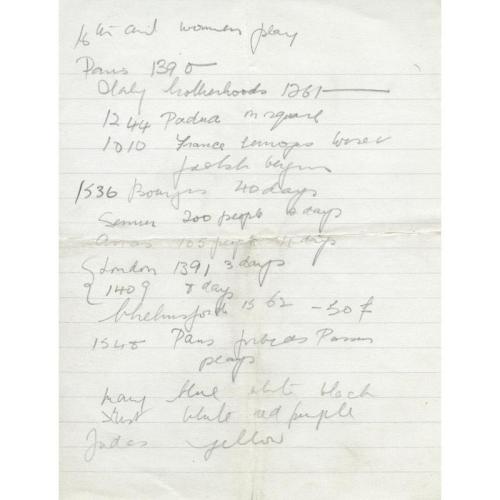 16th and women play
Paris 1395
Italy brotherhoods 1261
1244 Padua in square
1010 France
begins
1536 Bourges 40 days
200 people 10 days
Arras 105 people 41 days
London 1391 3 days
1409 8 days
Chelmsford 1562 - 50 f
1548 Paris forbids Passion
plays
Mary blue white black
Christ white red purple
Judas yellow